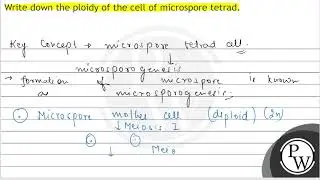 Write down the ploidy of the cell of microspore tetrad.
Key Concept → microspore tetrad cell.
↓
microsporogenesis
→ formation of microspore is known
as microsporogenesis.
Microspore mother cell (diploid) (2n)
↓ Meiosis I
↓ Meio
PW